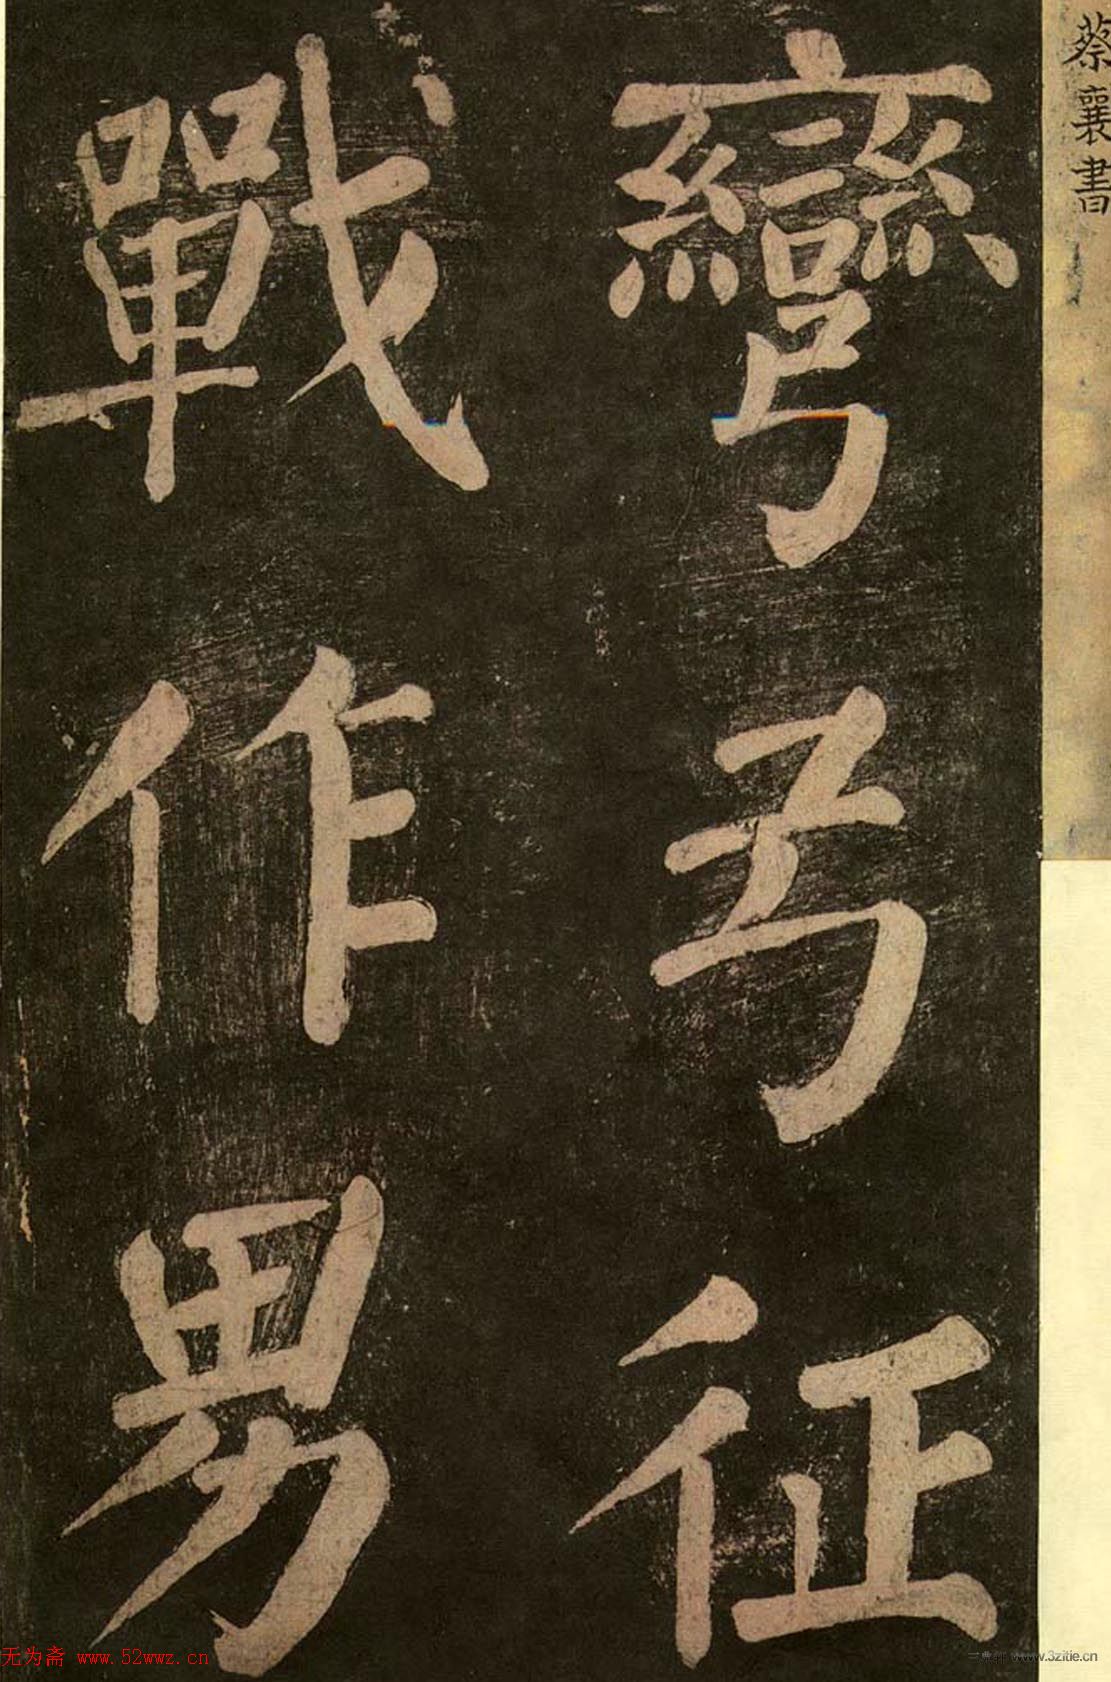 蔡襄書
彎弓征
戰作男
无为斋 www.52wwz.cn
www.3zitie.cn